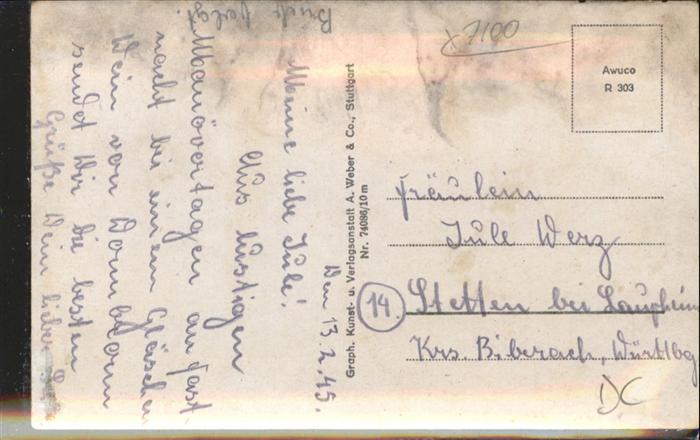 Den 13.2.45.
Meine liebe Jule!
Aus lustigen
Manövertagen an Fast-
nacht bei einem Gläschen
Wein von Dornborn
sendet Dir die besten
Grüße Dein lieber
Brief folgt.
Graph. Kunst- u. Verlagsanstalt A. Weber & Co., Stuttgart
Nr. 74086/10 m
x 7100
Awuco
R 303
Fräulein
Jule Werz
14 Stetten bei Laupheim
Krs. Biberach, Württbg
DC